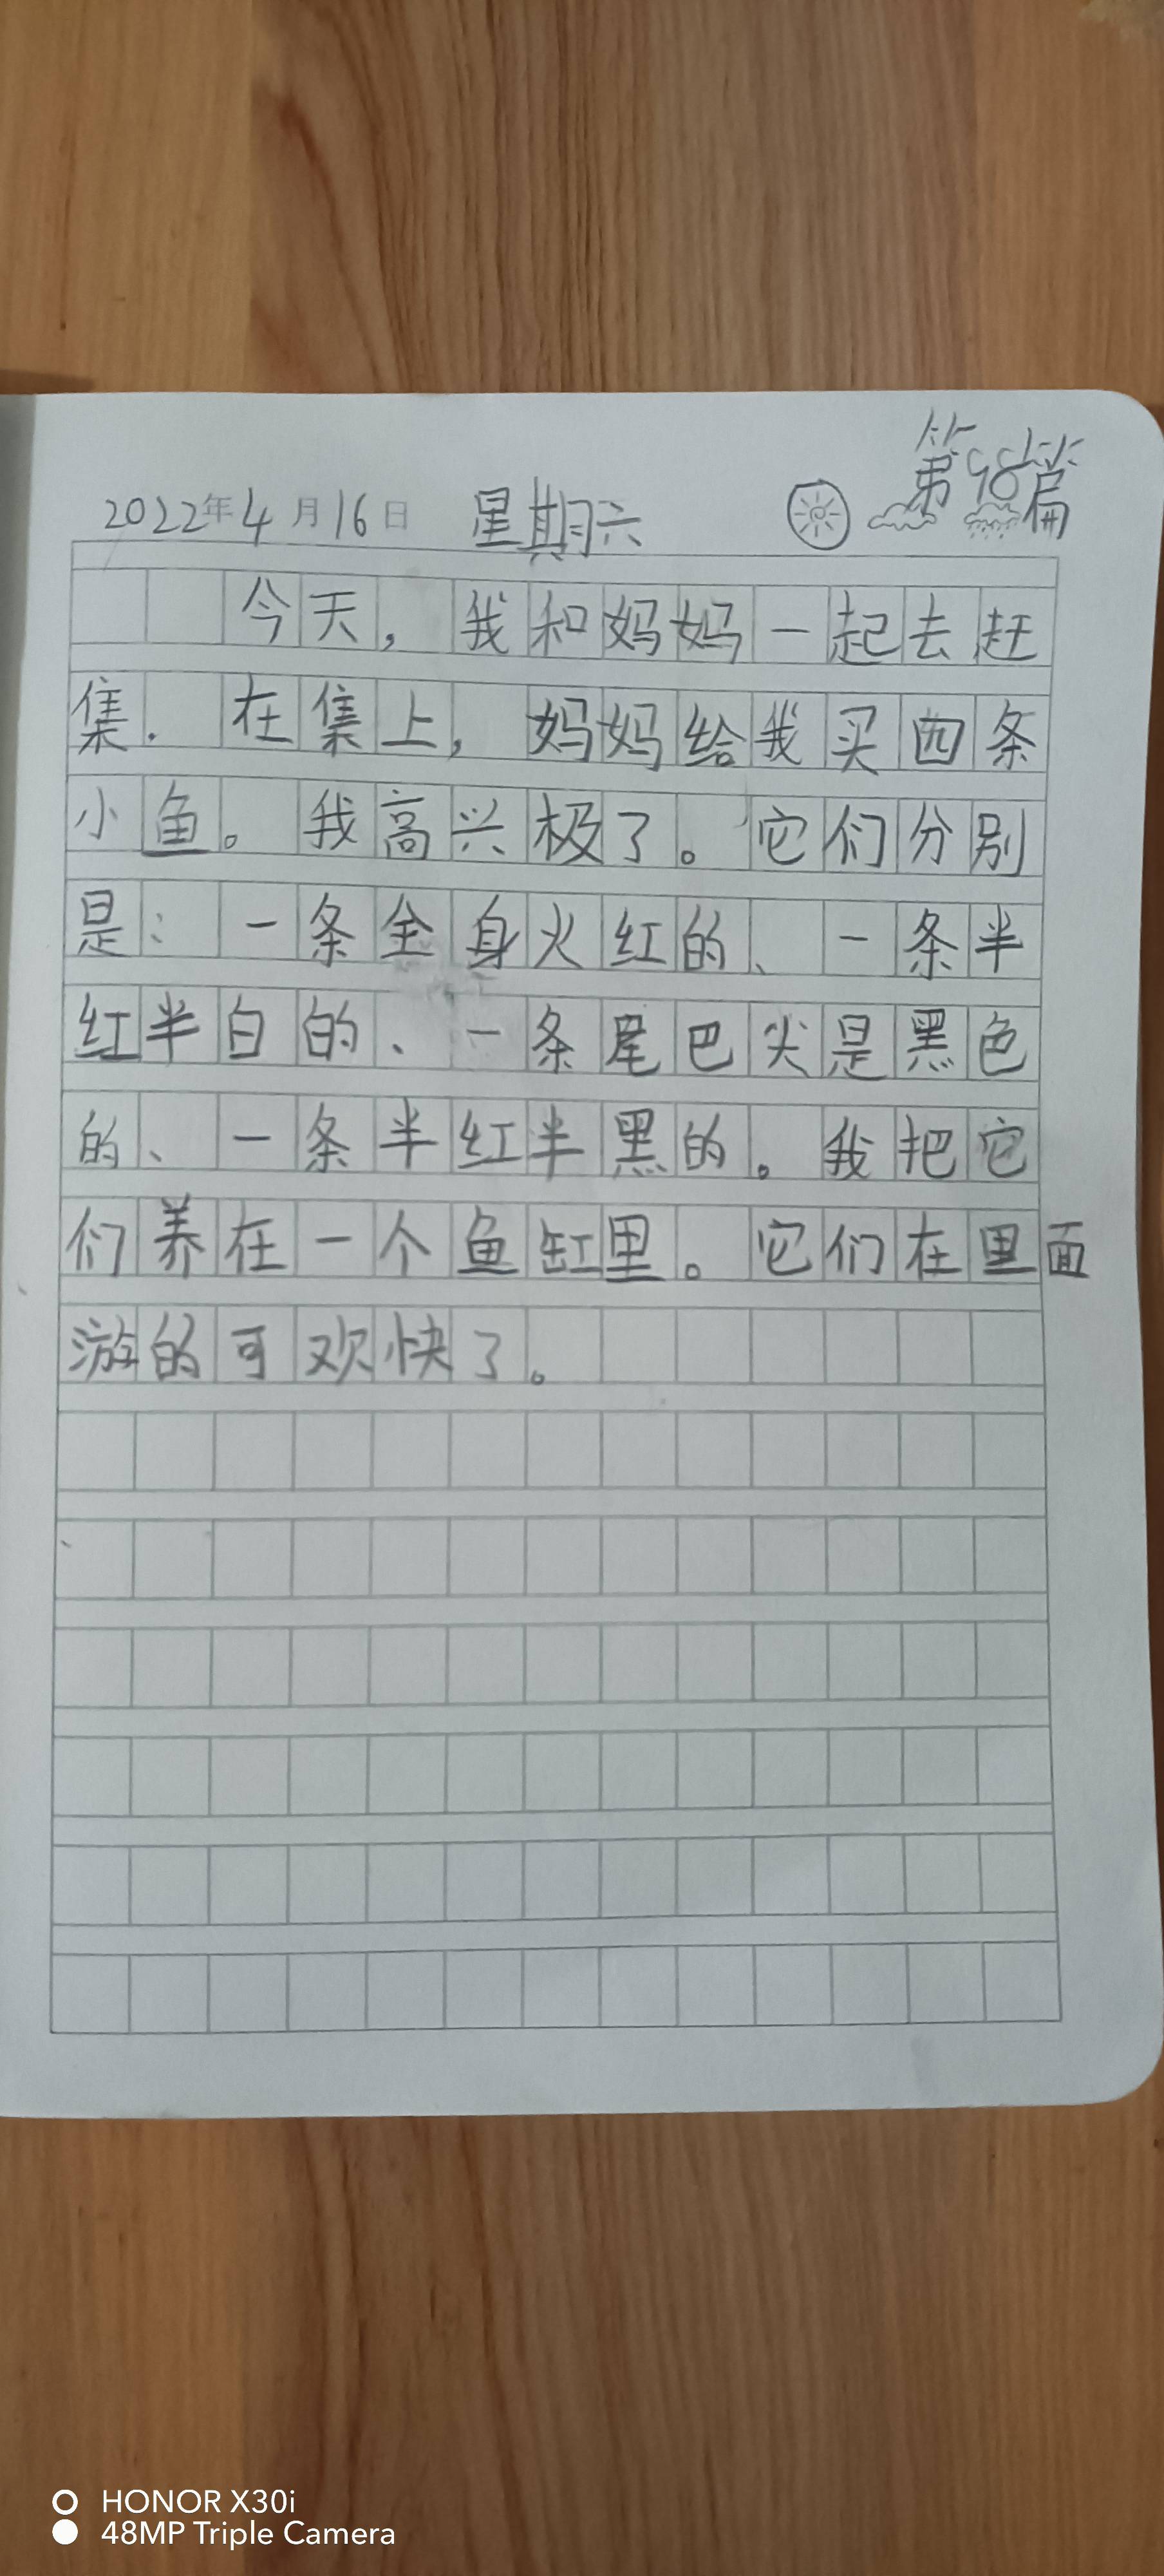 第98篇
2022年4月16日 星期六
今天，我和妈妈一起去赶
集．在集上，妈妈给我买四条
小鱼。我高兴极了。它们分别
是：一条全身火红的、一条半
红半白的、一条尾巴尖是黑色
的、一条半红半黑的。我把它
们养在一个鱼缸里。它们在里面
游的可欢快了。
HONOR X30i
48MP Triple Camera